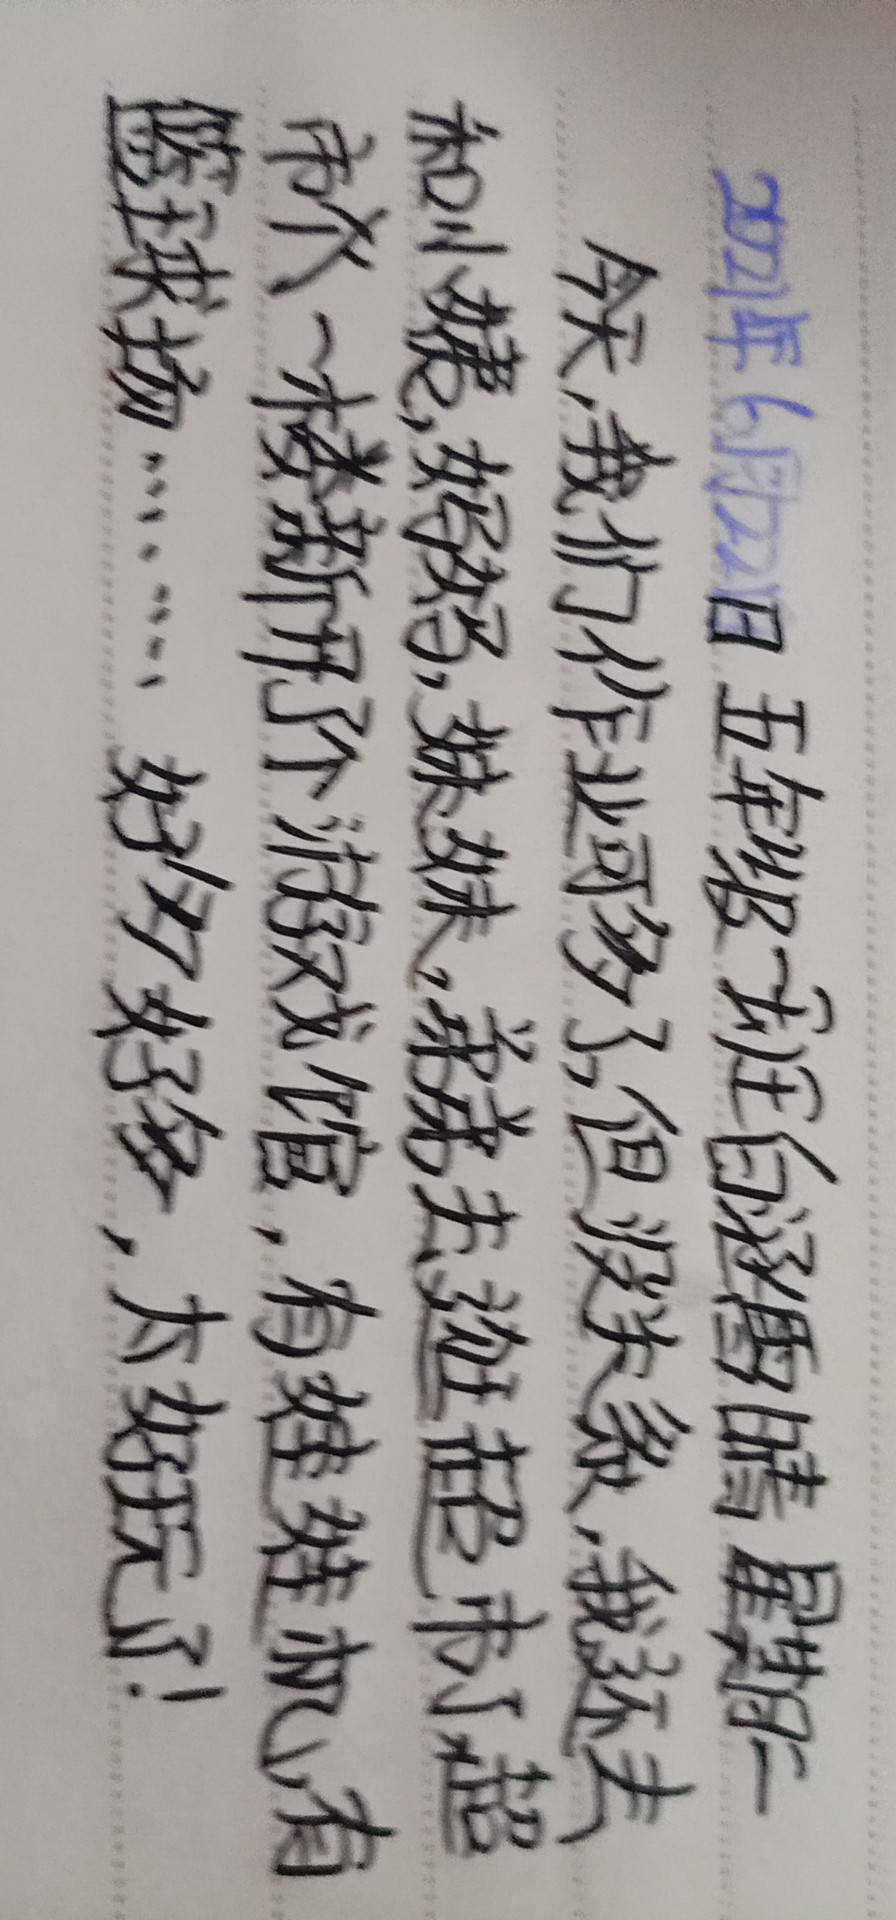 2021年6月22日 五年级一班 白涵 晴 星期二
今天,我们作业可多了,但没关系,我还去
和小婕,妈妈,妹妹,弟弟去逛超市了,超
市八一楼新开个游戏馆,有娃娃机,有
篮球场………… 好多好多,太好玩了!